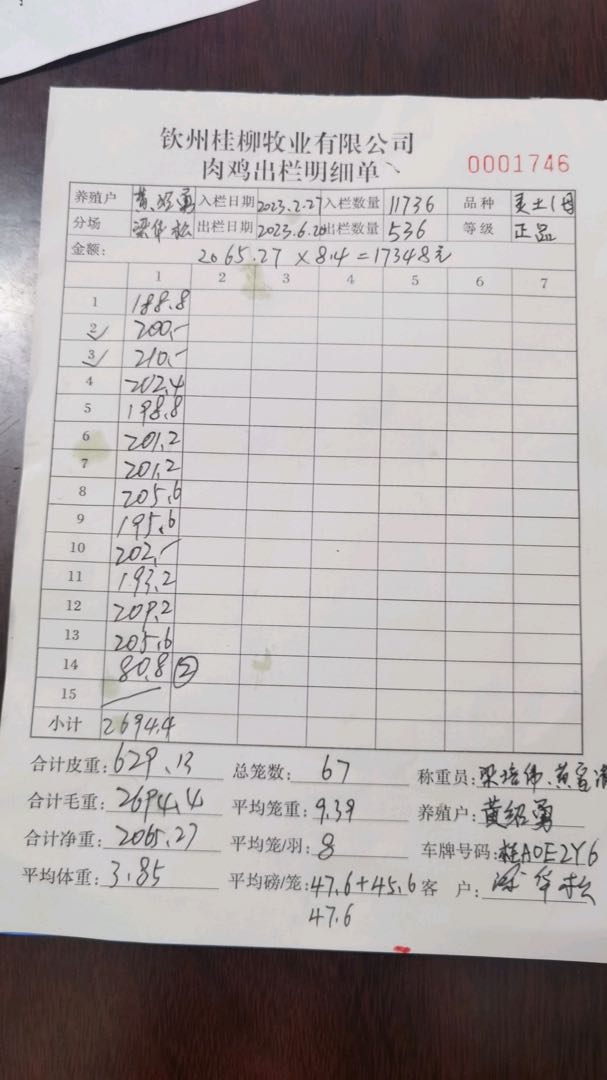 钦州桂柳牧业有限公司
肉鸡出栏明细单
0001746
养殖户 黄绍勇 入栏日期 2023.2.27 入栏数量 11736 品种
分场 梁华松 出栏日期 2023.6.20 出栏数量 536 等级 正品
金额: 2065.27 × 8.4 = 17348元
1 2 3 4 5 6 7
1 188.8
2 200.-
3 210.-
4 202.4
5 198.8
6 201.2
7 201.2
8 205.6
9 195.6
10 202.-
11 193.2
12 209.2
13 205.6
14 80.8 ②
15
小计 2694.4
合计皮重: 629.13 总笼数: 67 称重员: 梁培伟、黄
合计毛重: 2694.4 平均笼重: 9.39 养殖户: 黄绍勇
合计净重: 2065.27 平均笼/羽: 8 车牌号码: 桂A0E2Y6
平均体重: 3.85 平均磅/笼: 47.6+45.6 客 户: 梁华松
47.6